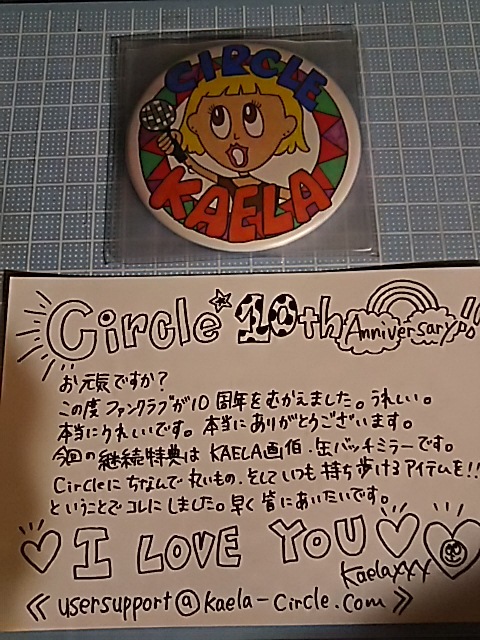 CIRCLE
KAELA
Circle 10th Anniversary!!
お元気ですか?
この度ファンクラブが10周年をむかえました。うれしい。
本当にうれしいです。本当にありがとうございます。
今回の継続特典はKAELA画伯.缶バッチミラーです。
Circleにちなんで丸いもの.そしていつも持ち歩けるアイテムを!!
ということでコレにしました。早く皆にあいたいです。
I LOVE YOU
Kaelaxxx
《usersupport@kaela-circle.com》